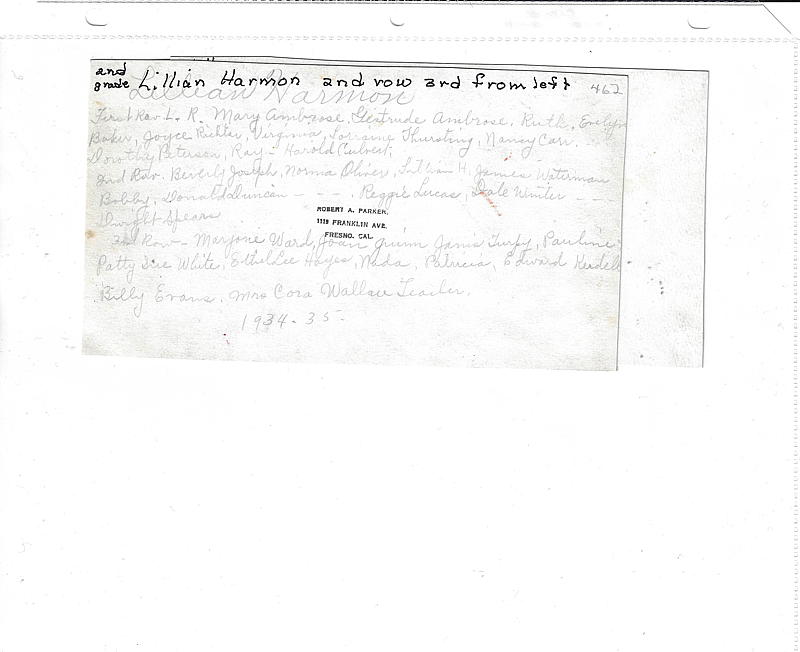 2nd
grade Lillian Harmon 2nd row 3rd from left 462
Lillian Harmon
First Row L. R. Mary Ambrose, Gertrude Ambrose, Ruth, Evelyn
Baker, Joyce Richter, Virginia, Lorraine Thursting, Nancy Carr.
Dorothy Peterson, Ray - Harold Culvert,
2nd Row. Beverly Joseph, Norma Oliver, Lillian H. James Waterman
Bobby, Donald Duncan - - - . Reggie Lucas, Dale Winter - -
Dwight Spears
ROBERT A. PARKER,
1119 FRANKLIN AVE.
FRESNO, CAL.
3rd Row - Marjorie Ward, Joan Janis Pauline
Patty Sue White, Ethel Lee Hayes, Nada, Patricia, Edward
Billy Evans. Mrs Cora Wallace Teacher.
1934-35-